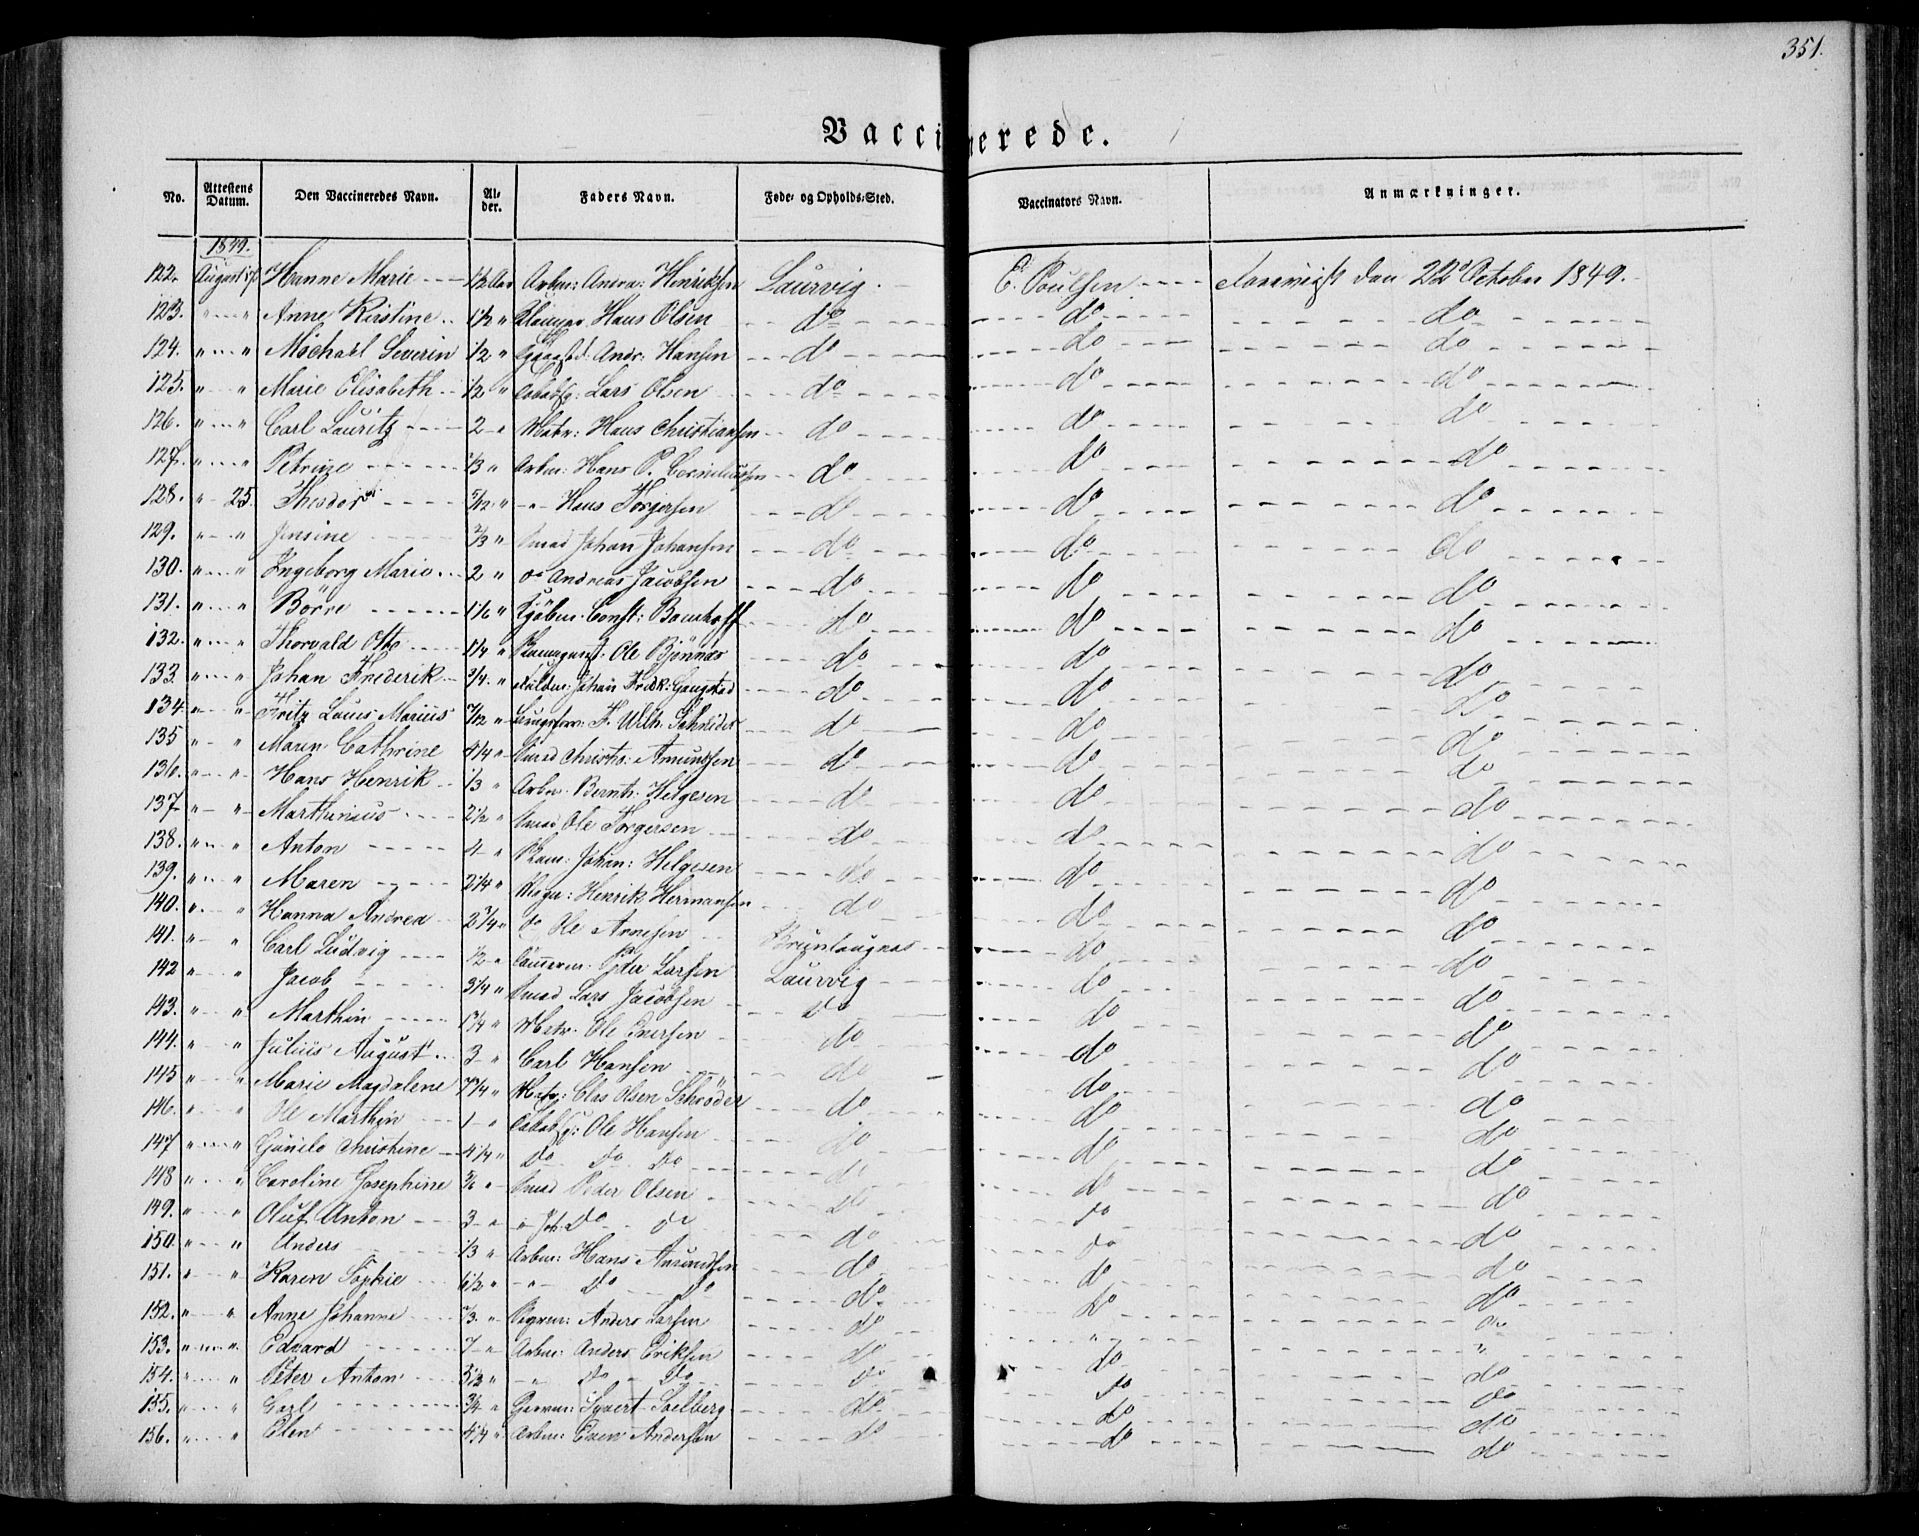 351.
Vaccinerede.
No. Attestens Datum. Den Vaccineredes Navn. Al-der. Faders Navn. Føde- og Opholds-Sted. Vaccinators Navn. Anmærkninger.
1849.
122. August Hanne Marie 1½ Aar Arbm: Andrs: Henriksen Laurvig. C. Poulsen 22d October 1849.
123. " " Anne Kirstine 1½ " Hans Olsen do do do
124. " " Michael Severin ½ " Andr: Hansen do do do
125. " " Marie Elisabeth ½ " Lars Olsen do do do
126. " " Carl Lauritz 2 " Matr: Hans Christiansen do do do
127. " " Petrine ⅓ " Arbm: Hans P. Corneliussen do do do
128. " 25 Theodor 5/12 " " Hans Torgersen do do do
129. " " Jensine ⅔ " Johan Johansen do do do
130. " " Ingeborg Marie 2 " do Andreas Jacobsen do do do
131. " " Börre 1⅙ " Kjöbm. Const: Bomhoff do do do
132. " " Thorvald Otto 1¼ " Ole Björnnæs do do do
133 " " Johan Frederik ¾ " Johan Fredk: Gaugstad do do do
134 " " Fritz Louis Marius 7/12 " F. Wilh. Schneider do do do
135 " " Maren Cathrine 4¼ " Smed Christo: Amundsen do do do
136. " " Hans Henrik ⅓ " Arbm. Bernts: Helgesen do do do
137 " " Marthinius 2½ " Smed Ole Torgersen do do do
138. " " Anton 4 " Johan: Helgesen do do do
139. " " Maren 2¼ " Henrik Hermansen do do do
140. " " Hanna Andrea 2¾ " do Ole Arnesen do do do
141. " " Carl Ludvig ½ " Peder Larsen Brunlaugnæs do do
142 " " Jacob 3¼ " Smed Lars Jacobsen Laurvig do do
143. " " Marthin 1¾ " Matr. Ole Iversen do do do
144. " " Julius August 3 " Carl Hansen do do do
145 " " Marie Magdalene 7¾ " Matr: Clas Olsen Schröder do do do
146. " " Ole Marthin 1 " Ole Hansen do do do
147 " " Gunild Christine 4¼ " do do do do do do
148 " " Caroline Josephine 5/6 " Smed Peder Olsen do do do
149. " " Oluf Anton 3 " " do do do do do
150. " " Anders ⅓ " Arbm: Hans Amundsen do do do
151. " " Karen Sophie 6½ " " do do do do do
152. " " Anne Johanne ⅔ " Anders Larsen do do do
153. " " Edvard 7 " Arbm: Anders Eriksen do " "
154. " " Peter Anton 3½ " " do do do do do
155. " " Carl ¾ " Syvert Solberg do do do
156. " " Elen 4¼ " Arbm: Even Andersen do do do